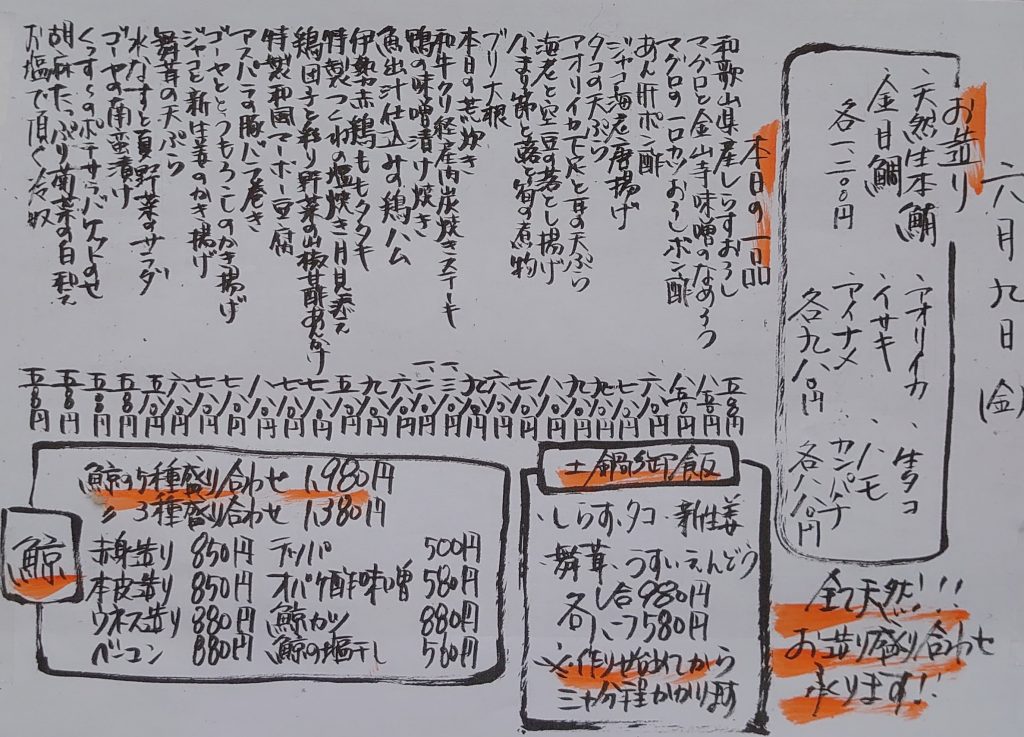 六月九日(金)
お造り
、天然生本鮪
、金目鯛
各一、二〇〇円
、アオリイカ
、イサキ
、アイナメ
各九八〇円
、生タコ
、ハモ
、カンパチ
各八八〇円
全て天然!!!
お造り盛り合わせ
承ります!!
本日の一品
和歌山県産しらすおろし 五八〇円
マグロと金山寺味噌のなめろう 八五〇円
マグロの一口カツおろしポン酢 八五〇円
あん肝ポン酢
ジャコ海老唐揚げ
タコの天ぷら
アオリイカ下足と耳の天ぷら
海老と空豆の落とし揚げ
なまり節と蕗と筍の煮物
ブリ大根
本日の荒炊き
和牛クリ経産肉炭焼きステーキ
鴨の味噌漬け焼き
魚出汁仕込みの鶏ハム
伊勢赤鶏ももタタキ
特製つくねの塩焼き月見添え
鶏団子と彩り野菜の山椒甘酢あんかけ
特製和風マーボー豆腐
アスパラの豚バラ巻き
ゴーヤととうもろこしのかき揚げ
ジャコと新生姜のかき揚げ
舞茸の天ぷら
水なすと夏野菜のサラダ
ゴーヤの南蛮漬け
くんすーのポテサラバケットのせ
胡麻たっぷり青菜の白和え
お塩で頂く冷奴
土鍋御飯
・しらす・タコ・新生姜
・舞茸・うすいえんどう
各し合980円
各ハーフ580円
※作り始めてから
三十分程かかります
鯨
鯨の5種盛り合わせ 1,980円
〃 3種盛り合わせ 1,380円
赤身造り 850円
本皮造り 850円
ウネス造り 880円
ベーコン 880円
テッパ 500円
オバケ酢味噌 580円
鯨カツ 880円
鯨の塩干し 580円